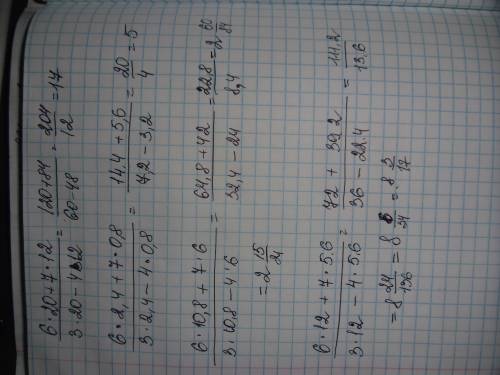 (6·20+7·12)/(3·20-4·12) = (120+84)/(60-48) = 204/12 = 17
(6·2,4+7·0,8)/(3·2,4-4·0,8) = (14,4+5,6)/(7,2-3,2) = 20/4 = 5
(6·10,8+7·6)/(3·10,8-4·6) = (64,8+42)/(32,4-24) = 228/8,4 = 2 60/84
= 2 15/21
(6·12+7·5.6)/(3·12-4·5.6) = (72+39.2)/(36-22.4) = 111.2/13.6
= 8 24/136 = 8 6/34 = 8 3/17